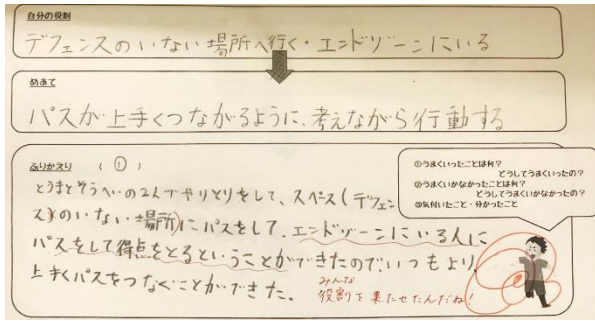 自分の役割
デフェンスのいない場所へ行く・エンドゾーンにいる
めあて
パスが上手くつながるように、考えながら行動する
ふりかえり (①)
①うまくいったことは何?
どうしてうまくいったの?
②うまくいかなかったことは何?
どうしてうまくいかなかったの?
③気付いたこと・分かったこと
とうまとそうへいの2人でやりとりをして、スペース(デフェン
ス)のいない場所にパスをして、エンドゾーンにいる人に
パスをして得点をとるということができたのでいつもより、
上手くパスをつなぐことができた。
みんな
役割を果たせたんだね!